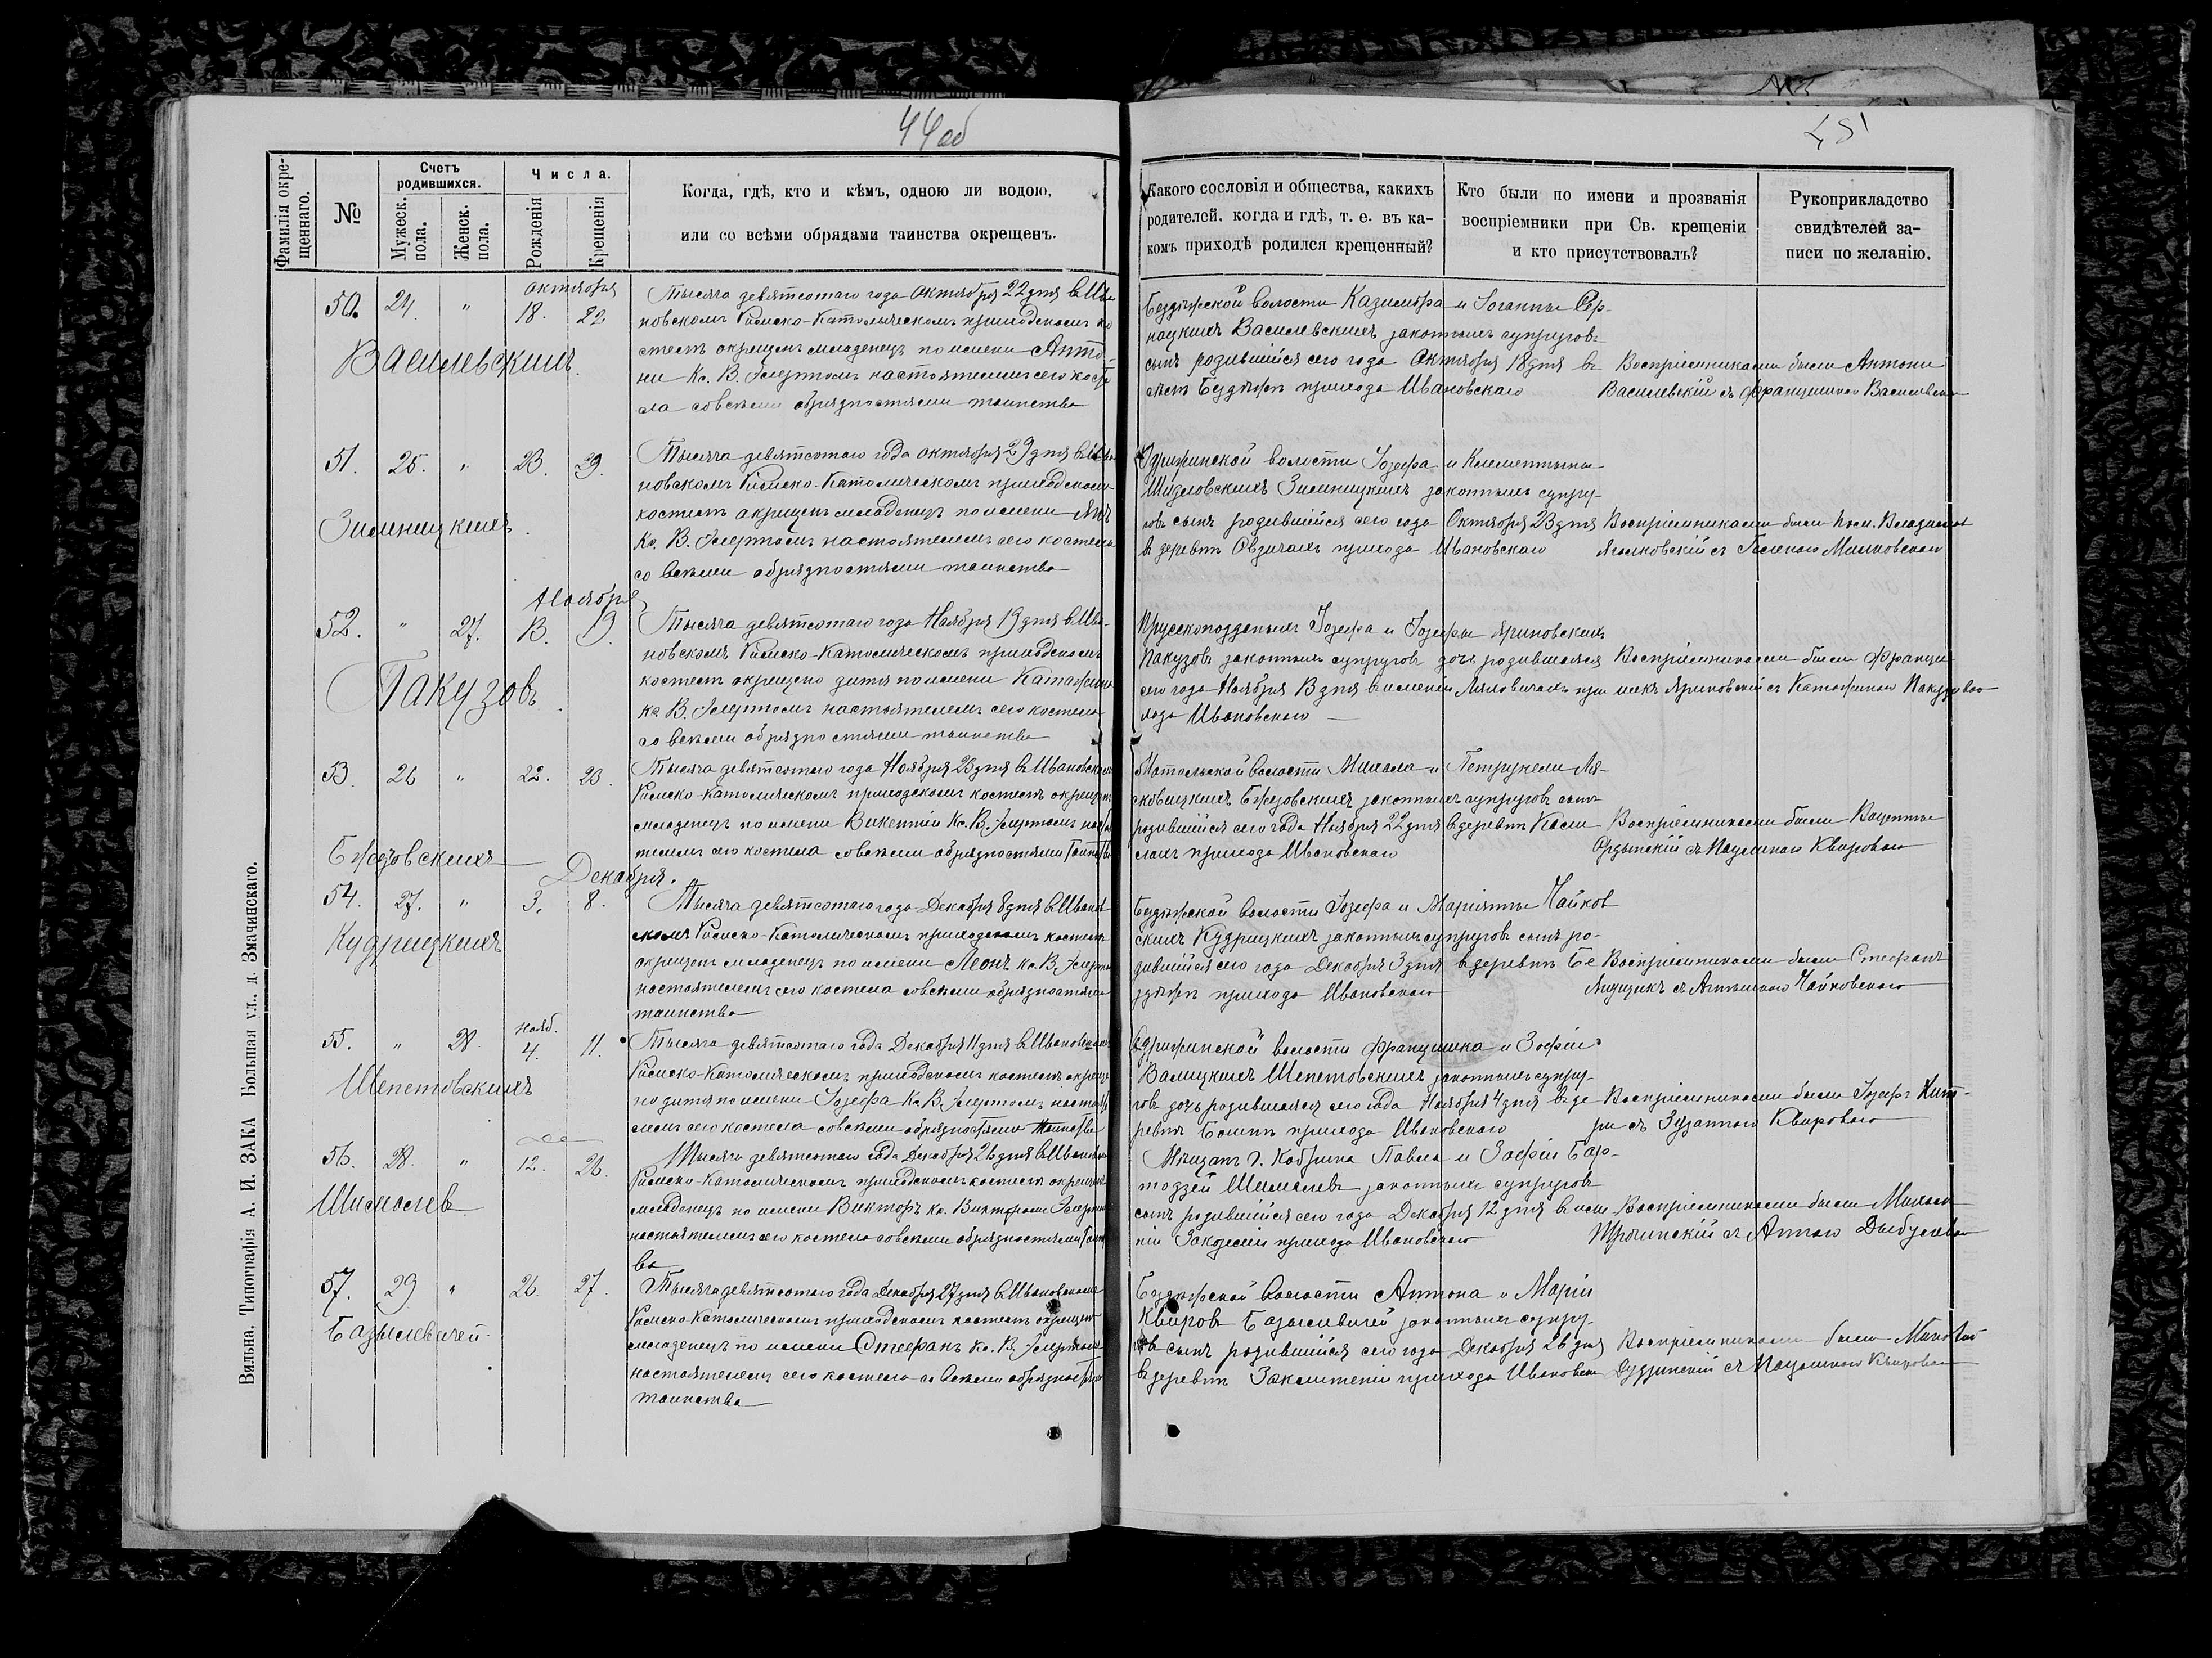 44об
45
Фамилія окрещеннаго.
№
Счетъ родившихся.
Мужеск. пола.
Женск. пола.
Числа.
Рожденія
Крещенія
Когда, гдѣ, кто и кѣмъ, одною ли водою,
или со всѣми обрядами таинства окрещенъ.
Какого сословія и общества, какихъ
родителей, когда и гдѣ, т. е. въ ка-
комъ приходѣ родился крещенный?
Кто были по имени и прозванія
воспріемники при Св. крещеніи
и кто присутствовалъ?
Рукоприкладство
свидѣтелей за-
писи по желанію.
октября
50. 24. " 18. 22
Василевскихъ.
Тысяча девятсотаго года Октября 22 дня в Ива
новскомъ Римско-Католическомъ приходскомъ ко
стелѣ окрещенъ младенецъ по имени Анто-
ни Кс. В. настоятелемъ сего косте
ла со всѣми обрядностями таинства
Бездѣжской волости Казиміра и Іоганны
Василевскихъ законныхъ супруговъ
сынъ родившійся сего года Октября 18 дня въ
Бездѣжѣ прихода Ивановскаго
Воспріемниками были Антони
Василевскій съ Францишкою
51. 25. " 23. 29.
Зилиницкихъ.
Тысяча девятсотаго года октября 29 дня в Ива
новскомъ Римско-Католическомъ приходскомъ
костелѣ окрещенъ младенецъ по имени Янъ
Кс. В. настоятелемъ сего костела
со всѣми обрядностями таинства
Одрижинской волости Іозефа и Клементины
Шидловскихъ Зилиницкихъ законныхъ супру-
говъ сынъ родившійся сего года Октября 23 дня
в деревнѣ Овзичахъ прихода Ивановскаго
Воспріемниками были
съ Геленою
Ноября
52. " 27. 13. 19.
Пакузовъ.
Тысяча девятсотаго года Ноября 19 дня в Ива-
новскомъ Римско-Католическомъ приходскомъ
костелѣ окрещено дитя по имени
кс В. настоятелемъ сего костела
со всѣми обрядностями таинства
Прусскоподданыхъ Іозефа и Іозефы Яриновскихъ
Пакузовъ законныхъ супруговъ дочь родившаяся
сего года Ноября 13 дня в имении Ляховичахъ при
хода Ивановского
Воспріемниками были Франци
шекъ Яриновскій съ
53. 26 " 22. 23.
Бжезовскихъ
Тысяча девятсотаго года Ноября 23 дня в Ивановском
Римско-Католическомъ приходскомъ костелѣ окрещенъ
младенецъ по имени Викентій Кс. В. нас
телемъ сего костела со всѣми обрядностями
Мотольской волости Михала и Петрунели Ля-
сковицкихъ Бжезовскихъ законныхъ супруговъ сынъ
родившійся сего года Ноября 22 дня в деревнѣ
прихода Ивановскаго
Воспріемниками были Виценты
съ Паулиною Квировою
Декабря.
54. 27. " 3. 8.
Кудрицкихъ
Тысяча девятсотаго года Декабря 8 дня в Иванов
скомъ Римско-Католическомъ приходскомъ костелѣ
окрещенъ младенецъ по имени Леонъ кс. В.
настоятелемъ сего костела со всѣми обрядностями
таинства
Бездѣжской волости Іозефа и Маріянны Чайков
скихъ Кудрицкихъ законныхъ супруговъ сынъ ро-
дившійся сего года Декабря 3 дня в деревнѣ Бе
здѣжѣ прихода Ивановского
Воспріемниками были Стефанъ
съ Чайковскою
нояб.
55. " 28. 4. 11.
Шепетовскихъ
Тысяча девятсотаго года Декабря 11 дня в Ивановскомъ
Римско-Католическомъ приходскомъ костелѣ окреще
но дитя по имени Іозефа Кс. В. настоя
лемъ сего костела со всѣми обрядностями таинства
Одрижинской волости Францишка и Зофіи
Валицкихъ Шепетовскихъ законныхъ супру-
говъ дочь родившаяся сего года Ноября 4 дня в де
ревнѣ прихода Ивановского
Воспріемниками были Іозефъ
съ Зузанною Квировою
56. 28. " 12. 26.
Шималевъ
Тысяча девятсотаго года Декабря 26 дня в Ивановск
Римско-Католическомъ приходскомъ костелѣ окрещенъ
младенецъ по имени Викторъ кс. Викторомъ
настоятелемъ сего костела со всѣми обрядностями таинст
ва
Мѣщанъ г. Кобрина Павла и Зофіи Бар-
тодзей Шималевъ законныхъ супруговъ
сынъ родившійся сего года Декабря 12 дня в име
ніи прихода Ивановского
Воспріемниками были Михалъ
съ Анною
57. 29 " 26. 27.
Базилевичей.
Тысяча девятсотаго года Декабря 27 дня в Ивановскомъ
Римско-Католическомъ приходскомъ костелѣ окрещенъ
младенецъ по имени Стефанъ Кс. В.
настоятелемъ сего костела со всѣми обрядностями
таинства
Бездѣжской волости Антона и Маріи
Квировъ Базилевичей законныхъ супру-
говъ сынъ родившійся сего года Декабря 26 дня
в деревнѣ прихода Ивановскаго
Воспріемниками были
съ Квировою
Вильна, Типографія А. И. ЗАКА Большая ул., д. Змачинскаго.